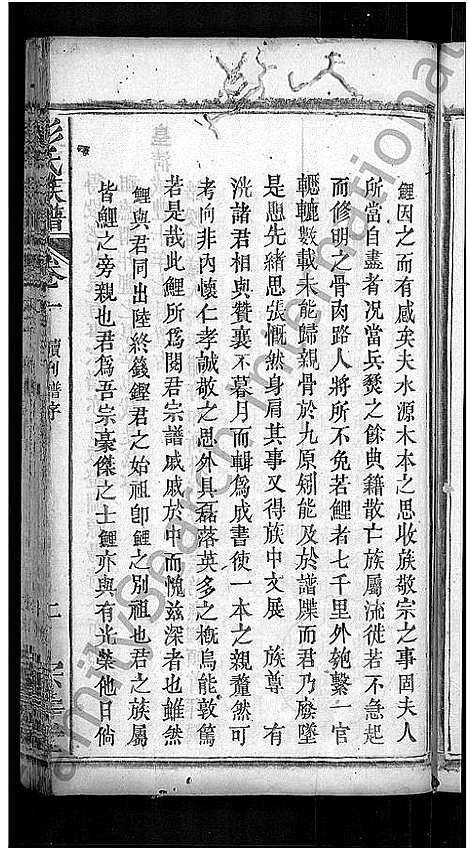 鯉因之而有感矣夫水源木本之思收族敬宗之事固夫人
所當自盡者况當兵燹之餘典籍散亡族屬流徙若不急起
而修明之骨肉路人將所不免若鯉者七千里外匏繫一官
轗軻數載未能歸親骨於九原矧能及於譜牒而君乃廢墜
是懸先緒思張慨然身肩其事又得族中文展 族尊 有
洸諸君相與贊襄不暮月而輯爲成書使一本之親釐然可
考向非內懷仁孝誠敬之思外具磊落英多之槪烏能敦篤
若是哉此鯉所爲閱君宗譜戚戚於中而愧兹深者也雖然
鯉與君同出陸終籛鏗君之始祖卽鯉之別祖也君之族屬
皆鯉之旁親也君爲吾宗豪傑之士鯉亦與有光榮他日倘
彭氏族譜
卷一
續刊譜序
二